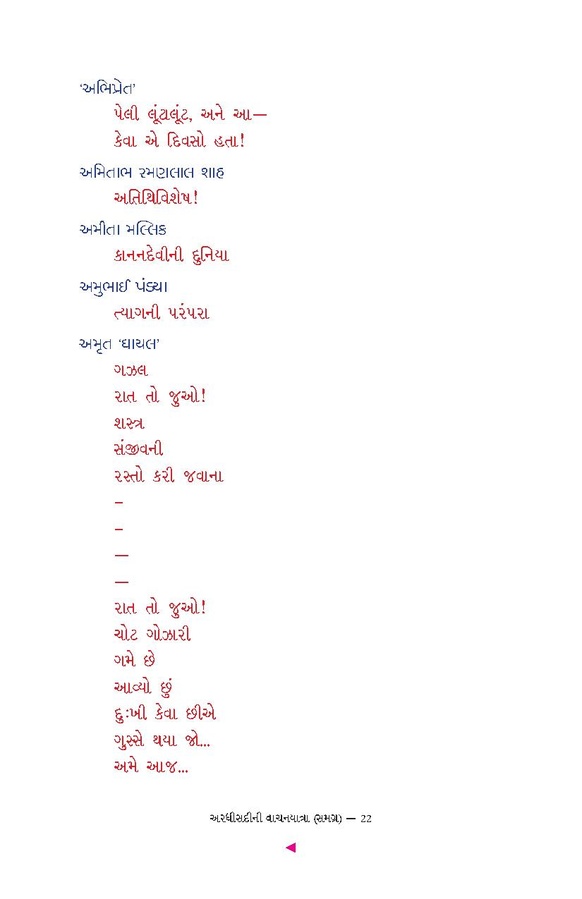 ‘અભિપ્રેત’
પેલી લૂંટાલૂંટ, અને આ—
કેવા એ દિવસો હતા!
અમિતાભ રમણલાલ શાહ
અતિથિવિશેષ!
અમીતા મલ્લિક
કાનનદેવીની દુનિયા
અમુભાઈ પંડ્યા
ત્યાગની પરંપરા
અમૃત ‘ઘાયલ’
ગઝલ
રાત તો જુઓ!
શસ્ત્ર
સંજીવની
રસ્તો કરી જવાના
–
–
—
—
રાત તો જુઓ!
ચોટ ગોઝારી
ગમે છે
આવ્યો છું
દુઃખી કેવા છીએ
ગુસ્સે થયા જો...
અમે આજ...
અરધીસદીની વાચનયાત્રા (સમગ્ર) — 22
◀